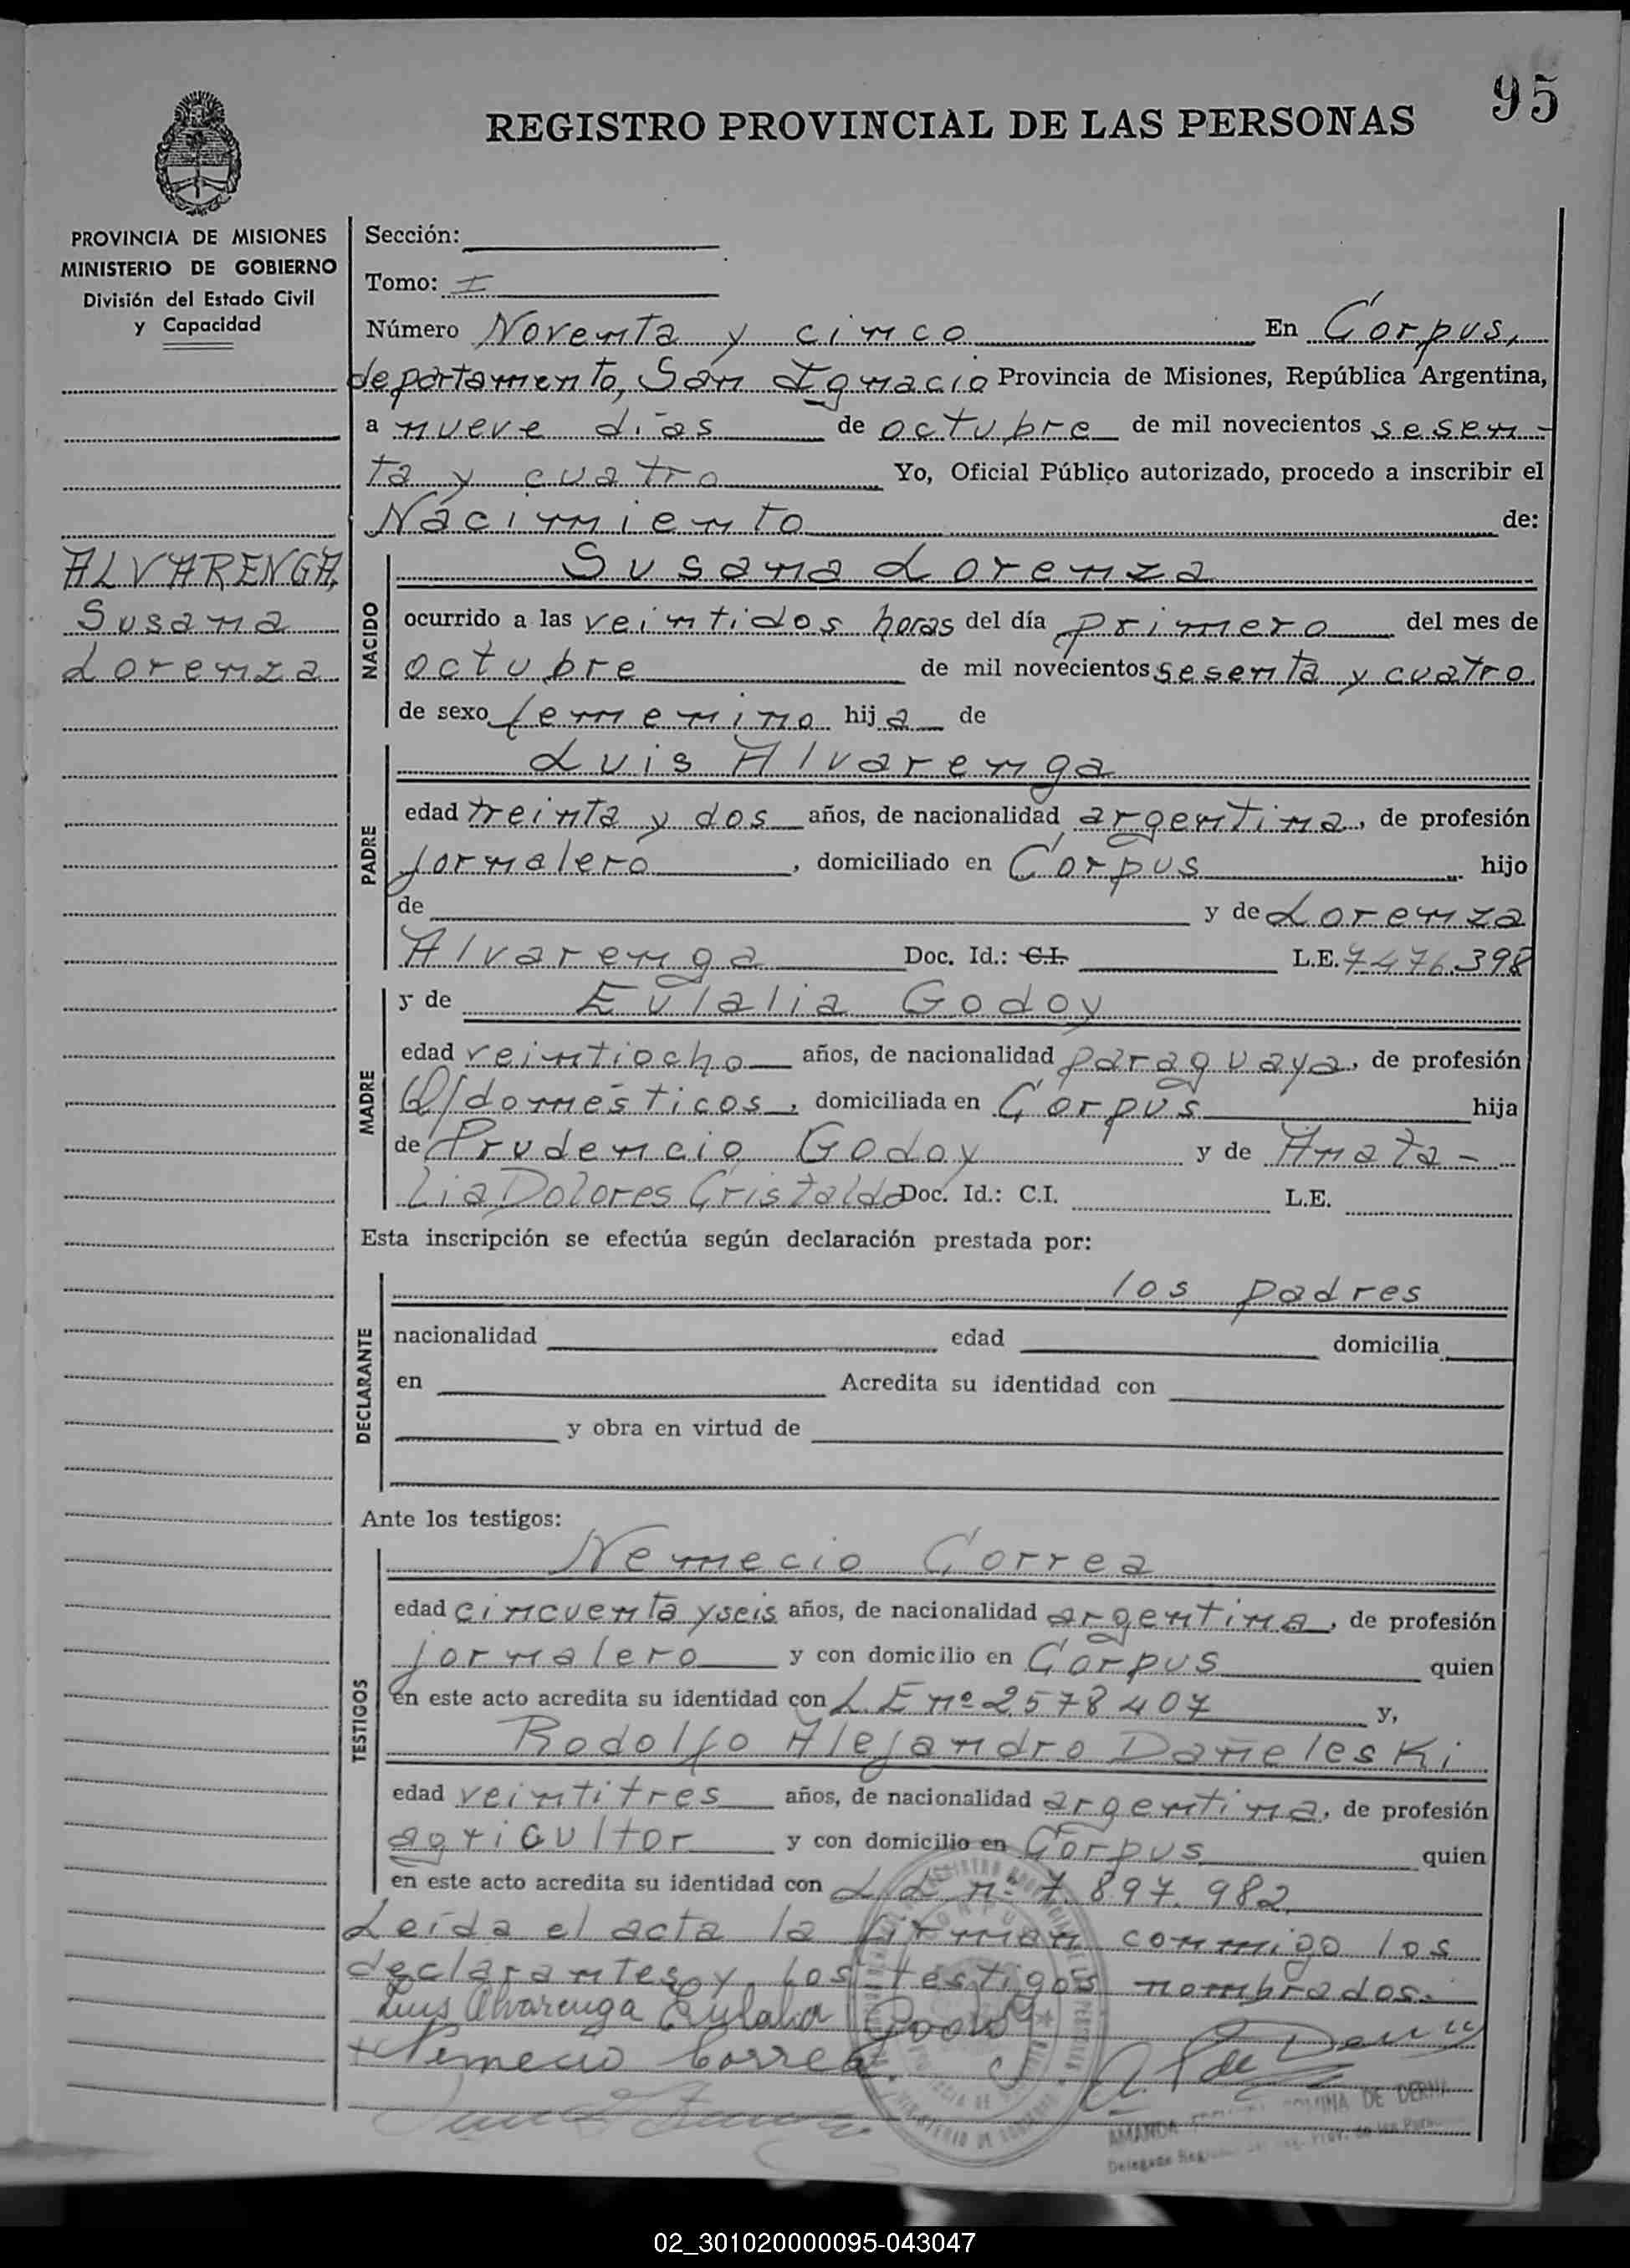 95
REGISTRO PROVINCIAL DE LAS PERSONAS
PROVINCIA DE MISIONES
MINISTERIO DE GOBIERNO
División del Estado Civil
y Capacidad
ALVARENGA,
Susana
Lorenza
Sección:
Tomo: I
Número Noventa y cinco En Corpus,
departamento, San Ignacio Provincia de Misiones, República Argentina,
a nueve días de octubre de mil novecientos sesen-
ta y cuatro Yo, Oficial Público autorizado, procedo a inscribir el
Nacimiento de:
NACIDO
Susana Lorenza
ocurrido a las veintidos horas del día primero del mes de
octubre de mil novecientos sesenta y cuatro
de sexo femenino hija de
PADRE
Luis Alvarenga
edad treinta y dos años, de nacionalidad argentina, de profesión
jornalero, domiciliado en Corpus hijo
de y de Lorenza
Alvarenga Doc. Id.: C.I. L.E. 7476.398
MADRE
y de Eulalia Godoy
edad veintiocho años, de nacionalidad paraguaya, de profesión
Q/domésticos, domiciliada en Corpus hija
de Prudencio Godoy y de Anata-
lia Dolores Cristaldo Doc. Id.: C.I. L.E.
Esta inscripción se efectúa según declaración prestada por:
DECLARANTE
los padres
nacionalidad edad domicilia
en Acredita su identidad con
y obra en virtud de
Ante los testigos:
TESTIGOS
Nemecio Correa
edad cincuenta y seis años, de nacionalidad argentina, de profesión
jornalero y con domicilio en Corpus quien
en este acto acredita su identidad con L.E nº 2578407 y,
Rodolfo Alejandro Dañeleski
edad veintitres años, de nacionalidad argentina, de profesión
agricultor y con domicilio en Corpus quien
en este acto acredita su identidad con nº 7.897.982
Leída el acta la firman conmigo los
declarantes y los testigos nombrados.
Luis Alvarenga Eulalia Godoy
Nemecio Correa
AMANDA DE DERNI
02_301020000095-043047